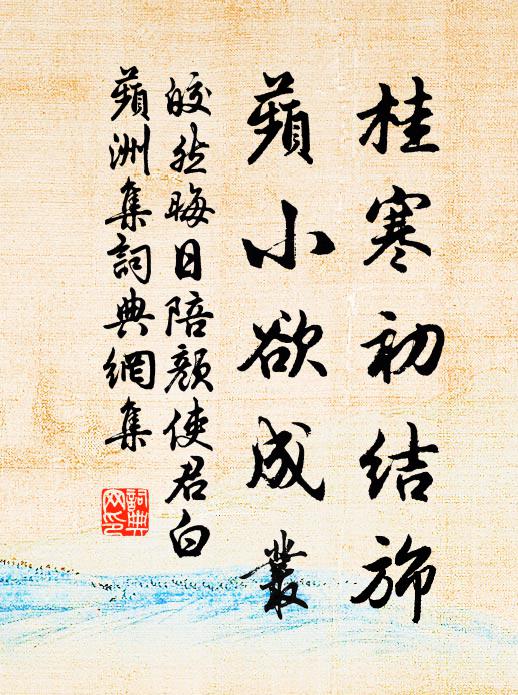 桂寒初結旆
蘋小欲成叢
皎然晦日陪顏使君白
蘋洲集詞典網集
詞典
网印